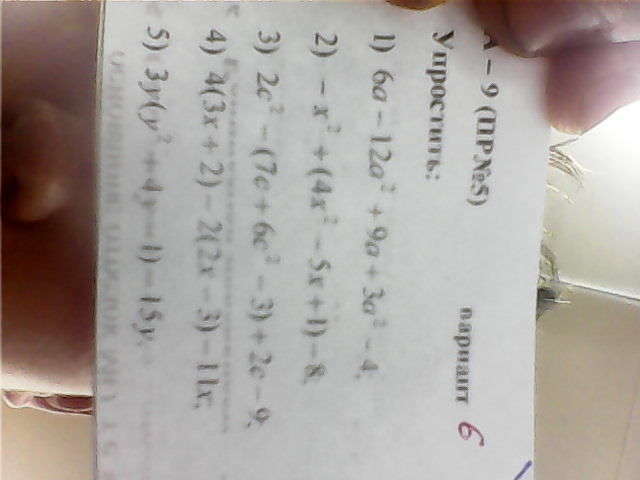 А – 9 (ПР№5) вариант 6
Упростить:
1) 6a – 12a² + 9a + 3a² – 4;
2) – x² + (4x² – 5x + 1) – 8;
3) 2c² – (7c + 6c² – 3) + 2c – 9;
4) 4(3x + 2) – 2(2x – 3) – 11x;
5) 3y(y² + 4y – 1) – 15y.